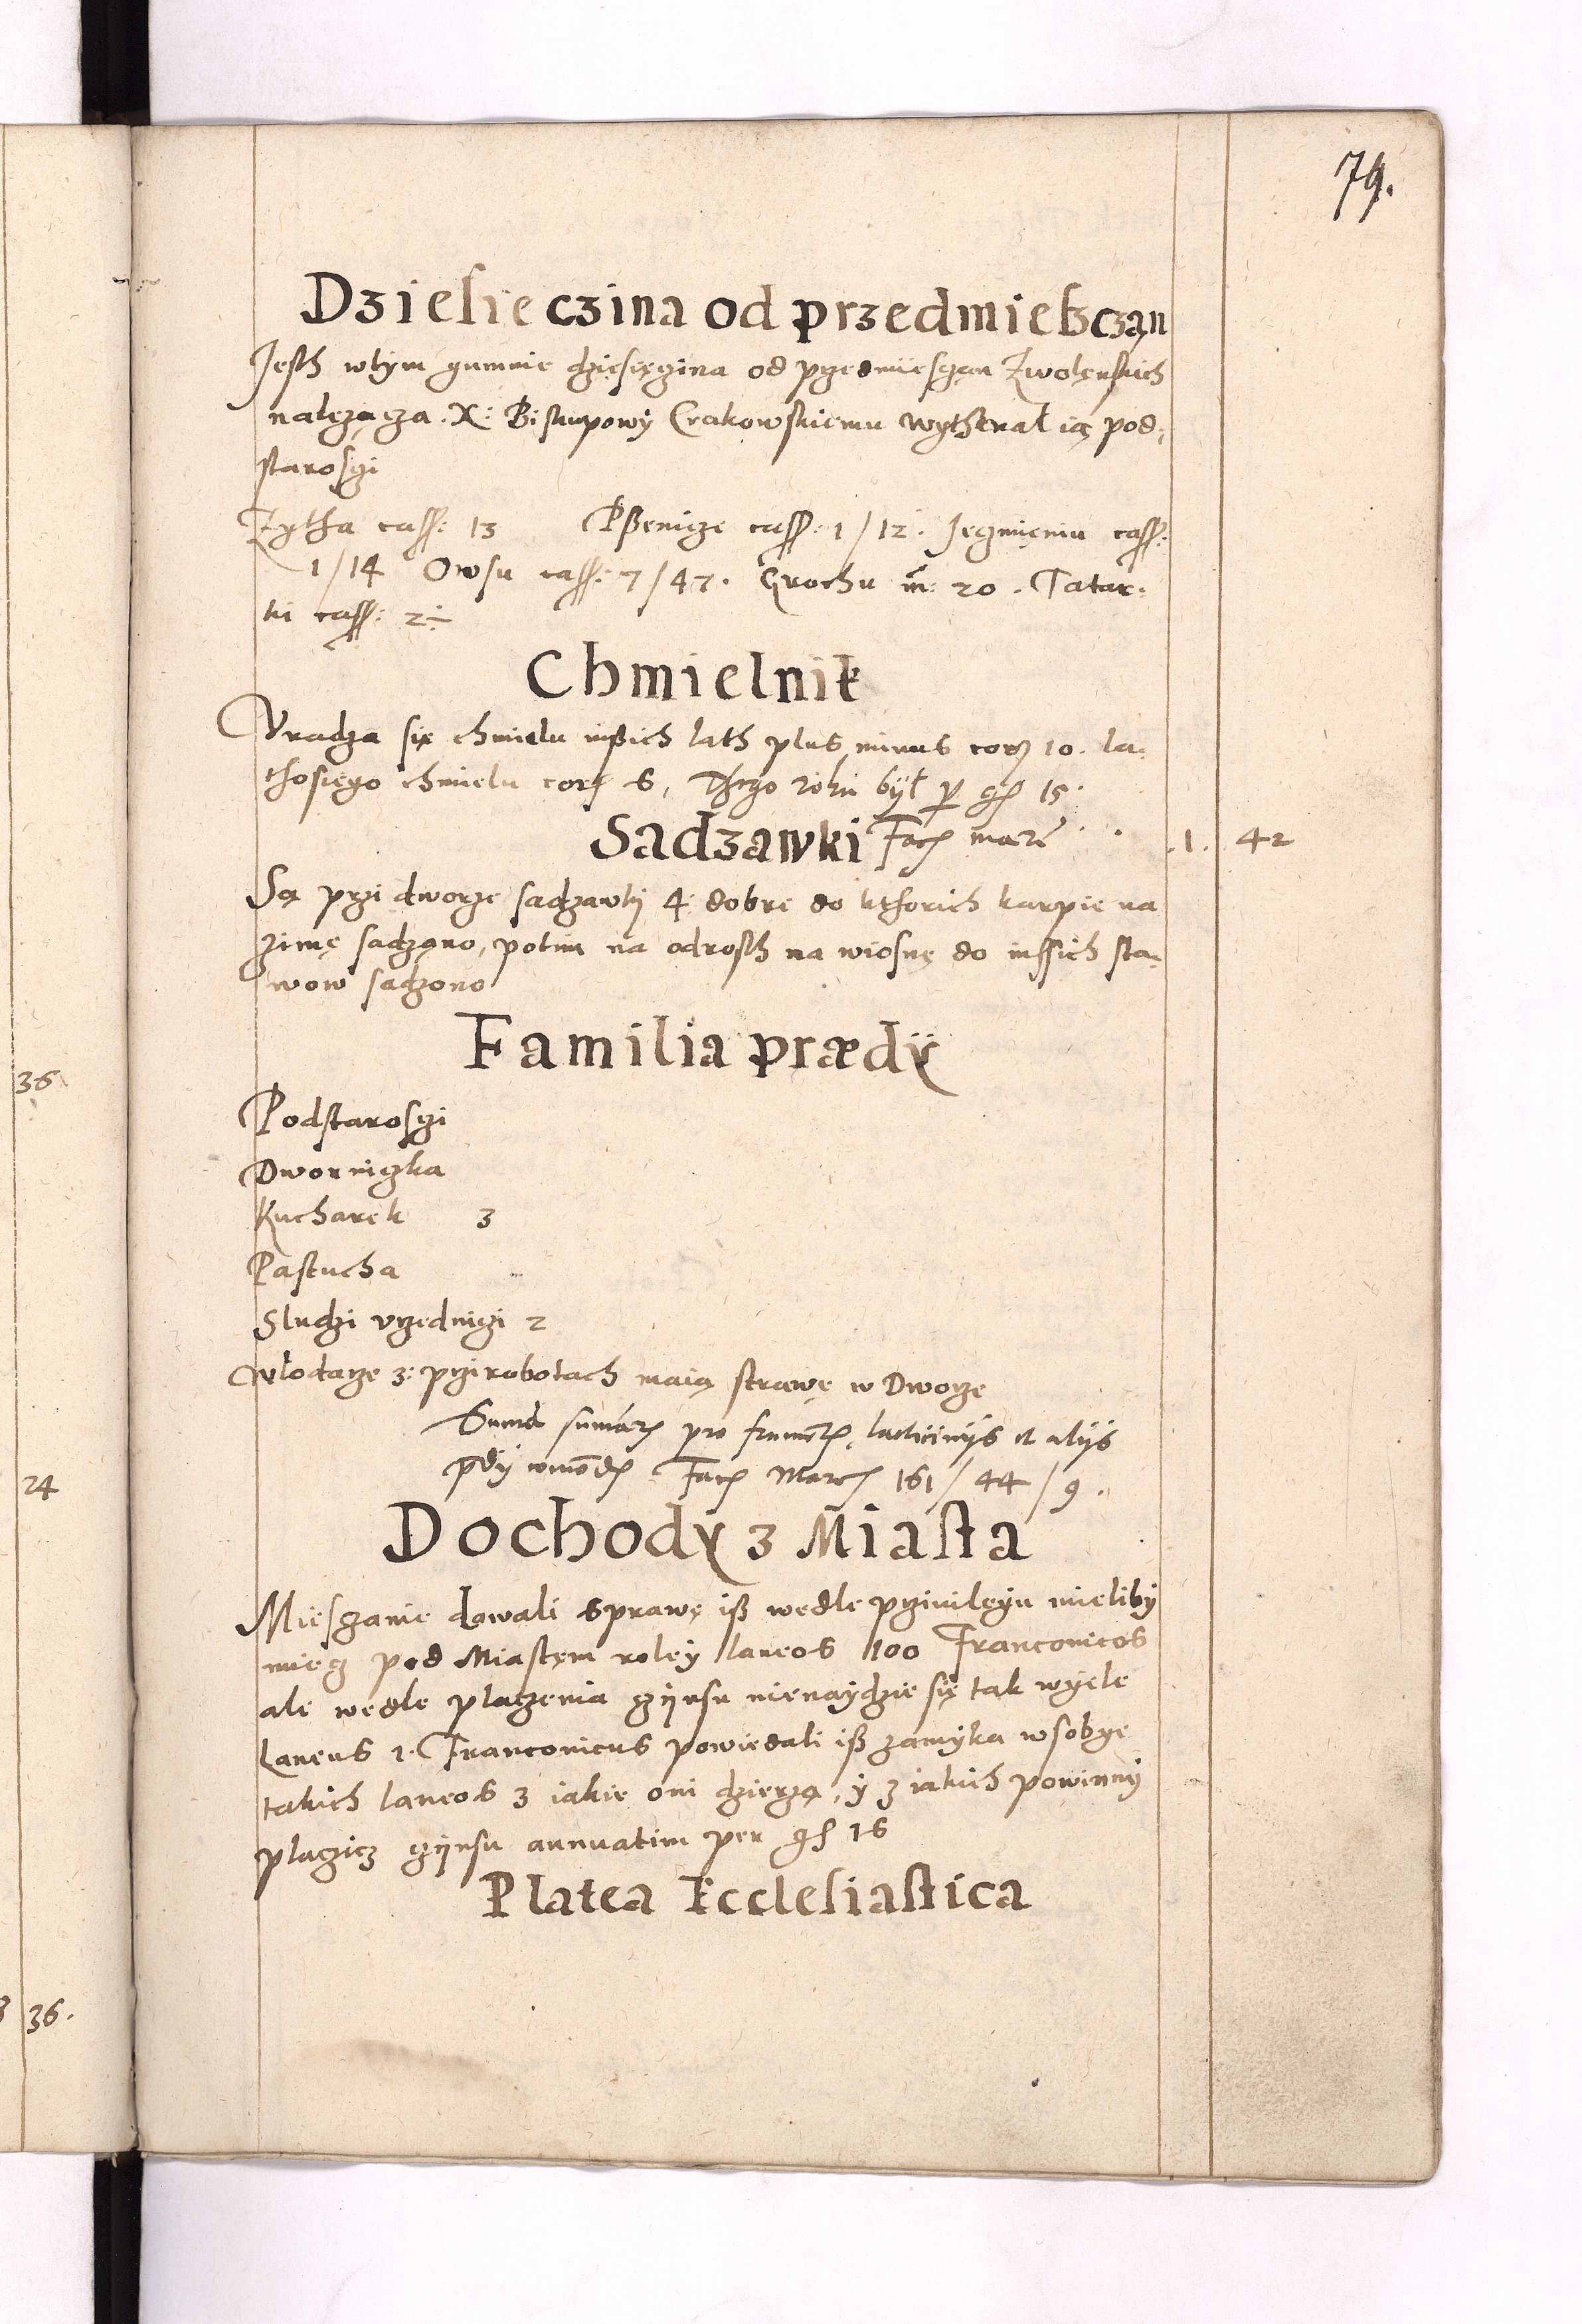 79.
Dziesieczina od przedmiesczan
Jesth wtym gumnie dziesięczina od przedmiesczan Zwolęnskich
należącza X: Biskupowy Crakowskiemu wythrzał ią pod-
starosczi
Zytha cass: 13 Pszenicze cass: 1/12. Jęczmięniu cass:
1/14 Owsu cass: 7/47. Grochu m: 20. Tatar-
ki cass: 2÷
Chmielnik
Vradza się chmielu inszich lath plus minus cor 10. la-
thosięgo chmielu cor 6, Thego roku był per gs 15.
Sadzawki Fac marc . . 1. 42
Są przi dworze sadzawki 4 dobre do kthorich karpie na
zimę sadzano, potim na odrosth na wiosnę do inssich sta-
wow sadzono
Familia prædÿ
Podstarosczi
Dworniczka
Kucharek 3
Pastucha
Sludzi vrzedniczi 2
Wlodarze 3: przi robotach maią strawę w Dworze
Suma sumar pro frument, lacticinijs et alijs
Fac Marc 161/44/9.
Dochody z Miasta
Miesczanie dawali sprawę isz wedle prziuilęyu mieliby
miecz pod Miastęm roley laneos 100 Franconicos
ale wedle placzenia czijnsu nienaydzie się tak wyele
Laneus 1. Franconicus powiedali isz zamyka wsobye
takich laneos 3 iakie oni dzierzą, y z iakich powinny
placzicz czijnsu annuatim per gs 16
Platea Ecclesiastica
36
24
36.